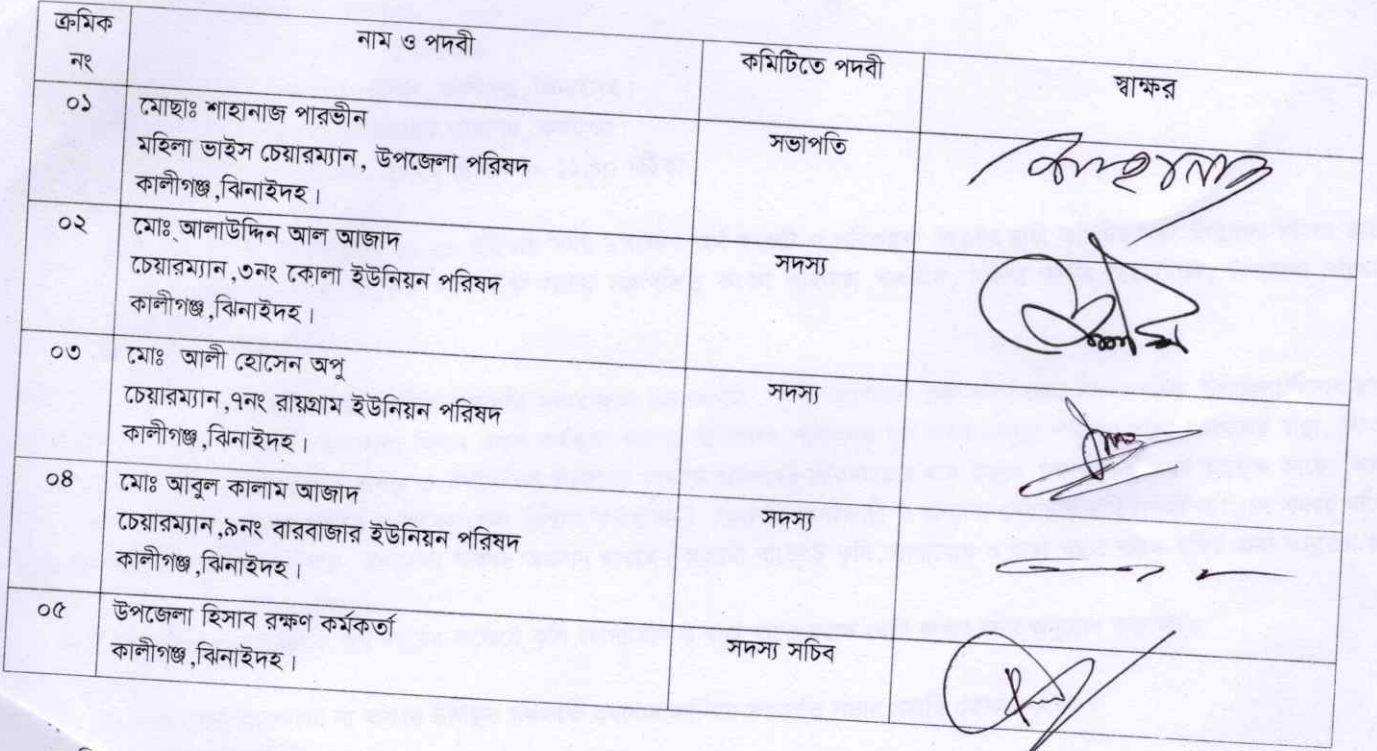 ক্রমিক নং নাম ও পদবী কমিটিতে পদবী স্বাক্ষর
০১ মোছাঃ শাহানাজ পারভীন সভাপতি
মহিলা ভাইস চেয়ারম্যান, উপজেলা পরিষদ
কালীগঞ্জ,ঝিনাইদহ।
০২ মোঃ আলাউদ্দিন আল আজাদ সদস্য
চেয়ারম্যান,৩নং কোলা ইউনিয়ন পরিষদ
কালীগঞ্জ,ঝিনাইদহ।
০৩ মোঃ আলী হোসেন অপু সদস্য
চেয়ারম্যান,৭নং রায়গ্রাম ইউনিয়ন পরিষদ
কালীগঞ্জ,ঝিনাইদহ।
০৪ মোঃ আবুল কালাম আজাদ সদস্য
চেয়ারম্যান,৯নং বারবাজার ইউনিয়ন পরিষদ
কালীগঞ্জ,ঝিনাইদহ।
০৫ উপজেলা হিসাব রক্ষণ কর্মকর্তা সদস্য সচিব
কালীগঞ্জ,ঝিনাইদহ।